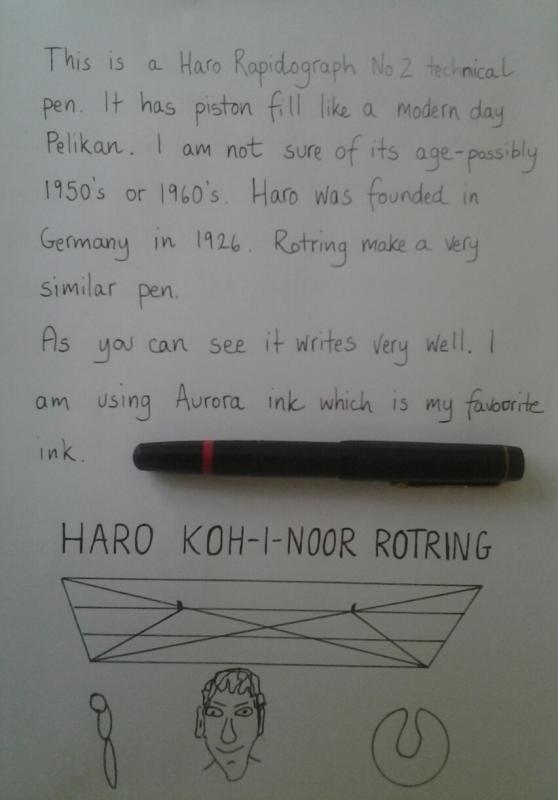 This is a Haro Rapidograph No 2 technical
pen. It has piston fill like a modern day
Pelikan. I am not sure of its age-possibly
1950's or 1960's. Haro was founded in
Germany in 1926. Rotring make a very
similar pen.
As you can see it writes very well. I
am using Aurora ink which is my favourite
ink.
HARO KOH-I-NOOR ROTRING